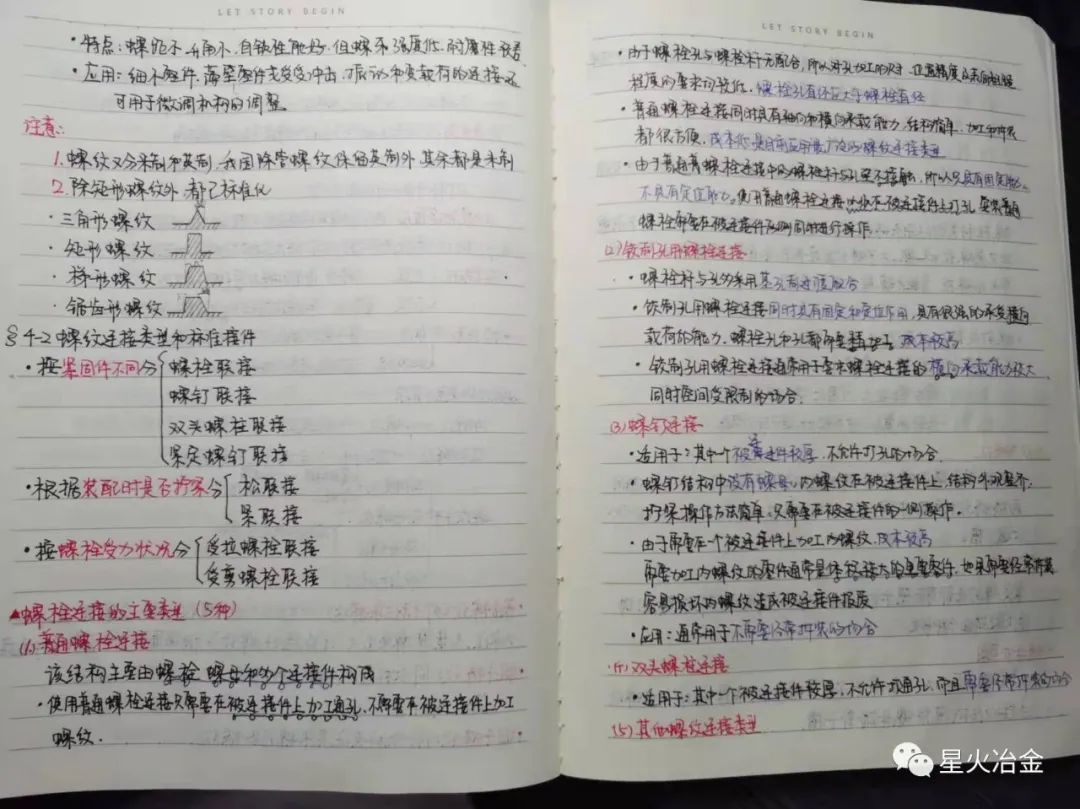 LET STORY BEGIN
·特点：螺距小、升角小、自锁性能好，但螺牙强度低，耐磨性较差
·应用：细小零件，薄壁零件或受冲击、振动和变载荷的连接还
可用于微调机构的调整
注意：
1. 螺纹又分米制和英制，我国除管螺纹保留英制外，其余都是米制
2. 除矩形螺纹外，都已标准化
·三角形螺纹
·矩形螺纹
·梯形螺纹
·锯齿形螺纹
§4-2 螺纹连接类型和标准接件
·按紧固件不同分 螺栓联接
螺钉联接
双头螺柱联接
紧定螺钉联接
·根据装配时是否拧紧分 松联接
紧联接
·按螺栓受力状况分 受拉螺栓联接
受剪螺栓联接
▲螺栓连接的主要类型（5种）
(1)普通螺栓连接
该结构主要由螺栓、螺母和两个连接件构成
·使用普通螺栓连接只需要在被连接件上加工通孔，不需要在被连接件上加工
螺纹.
LET STORY BEGIN
·由于螺栓孔与螺栓杆无配合，所以对孔加工的尺寸、位置精度及表面粗糙
程度的要求均较低，螺栓孔直径应大于螺栓直径
·普通螺栓连接同时具有轴向和横向承载能力，结构简单，加工和拆装
都很方便，成本低，是目前应用最广泛的螺纹连接类型
·由于普通螺栓连接中的螺栓杆与孔是不接触，所以只具有固定能力，
不具有定位能力，使用普通螺栓连接 在被连接件上打孔，安装普通
螺栓需要在被连接件两侧同时进行操作
(2)铰制孔用螺栓连接
·螺栓杆与孔多采用基孔制过渡配合
·铰制孔用螺栓连接同时具有固定和定位作用，具有很强的承受横向
载荷的能力，螺栓孔和孔都需要精加工，成本较高
·铰制孔用螺栓连接通常用于要求螺栓连接的横向承载能力较大，
同时空间受限制的场合.
(3)螺钉连接
·适用于：其中一个被连接件较厚，不允许打孔的场合
·螺钉结构中没有螺母，内螺纹在被连接件上，结构外观整齐，
拧紧操作方法简单，只需要在被连接件的一侧操作.
·由于需要在一个被连接件上加工内螺纹，成本较高
需要加工内螺纹的零件通常是体积较大的重要零件，如果需要经常拆装
容易损坏内螺纹造成被连接件报废
·应用：通常用于不需要经常拆装的场合
(4)双头螺柱连接
·适用于：其中一个被连接件较厚，不允许打通孔，而且需要经常拆装的场合
(5)其他螺纹连接类型
星火冶金